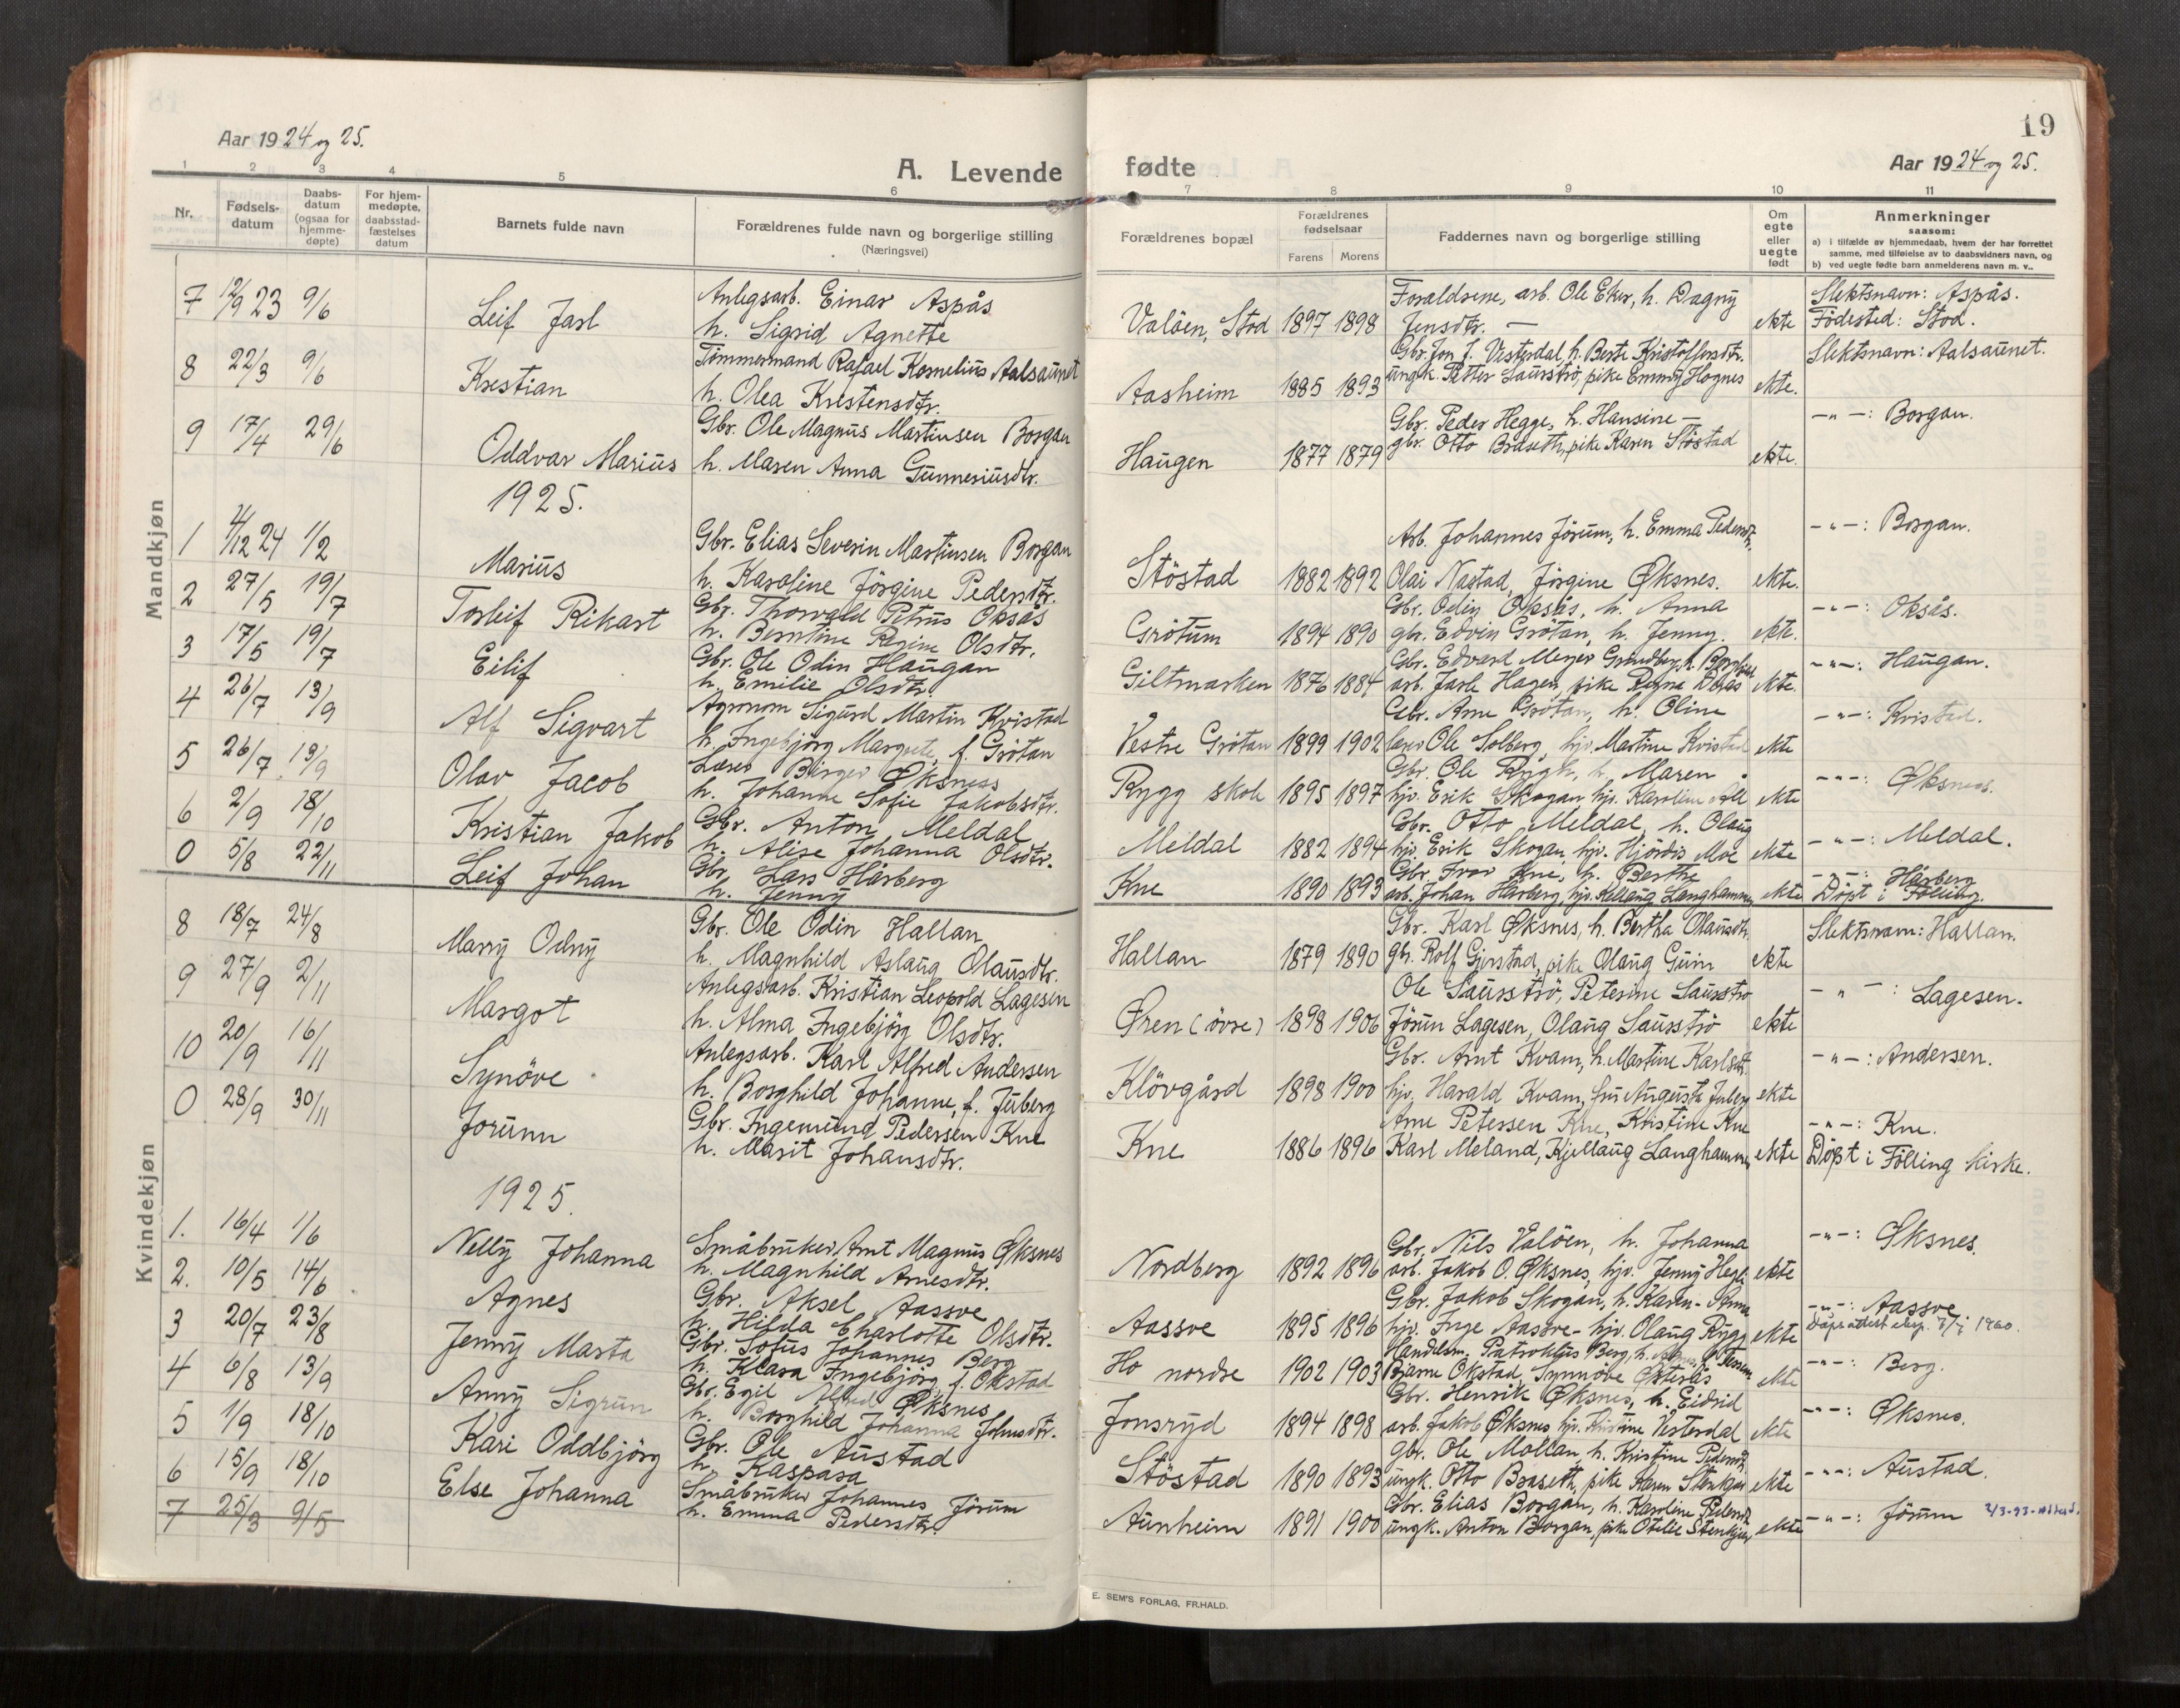 19
Aar 1924 og 25.
Aar 1924 og 25.
A. Levende fødte
1 2 3 4 5 6 7 8 9 10 11
Nr.
Fødsels-
datum
Daabs-
datum
(ogsaa for
hjemme-
døpte)
For hjem-
medøpte,
daabsstad-
fæstelses
datum
Barnets fulde navn
Forældrenes fulde navn og borgerlige stilling
(Næringsvei)
Forældrenes bopæl
Forældrenes
fødselsaar
Farens Morens
Faddernes navn og borgerlige stilling
Om
egte
eller
uegte
født
Anmerkninger
saasom:
a) i tilfælde av hjemmedaab, hvem der har forrettet
samme, med tilføielse av to daabsvidners navn, og
b) ved uegte fødte barn anmelderens navn m. v..
Mandkjøn
7 12/9 23 9/6 Leif Jarl
Anlegsarb. Einar Aspås
h. Sigrid Agnette
Valöen, Stod 1897 1898
Foraldrene, arb. Ole Eker, h. Dagny
Jensdtr. —
ekte
Slektsnavn: Aspås.
Fødested: Stod.
8 22/3 9/6 Krestian
Tömmermand Rafael Kornelius Aalsaunet
h. Olea Kristensdtr.
Aasheim 1885 1893
Gbr. Jon J. Vesterdal, h. Berte Kristoffersdtr.
ungk. Petter Saursträ, pike Emmy Hognes
ekte.
Slektsnavn: Aalsaunet.
9 17/4 29/6 Oddvar Marius
Gbr. Ole Magnus Martinsen Borgan
h. Maren Anna Gunneriusdtr.
Haugen 1877 1879
Gbr. Peder Hegge, h. Hansine —
gbr. Otto Braseth, pike Karen Stöstad
ekte.
—"—: Borgan.
1925.
1 4/12 24 1/2 Marius
Gbr. Elias Severin Martinsen Borgan
h. Karoline Jörgine Pedersdtr.
Stöstad 1882 1892
Arb. Johannes Jörum, h. Emma Pedersdtr,
Olai Nastad, Jörgine Øksnes.
ekte.
—"—: Borgan.
2 27/5 19/7 Torleif Rikart
Gbr. Thorvald Petrus Oksås
h. Berntine Regine Olsdtr.
Grötum 1894 1890
Gbr. Odin Oksås, h. Anna
gbr. Edvin Grötan, h. Jenny.
ekte.
—"—: Oksås.
3 17/5 19/7 Eilif
Gbr. Ole Odin Haugan
h. Emilie Olsdtr.
Giltmarken 1876 1884
Gbr. Edvard Meyer Grindberg, h.
arb. Jarle Hagen, pike Ragna
ekte.
—"—: Haugan.
4 26/7 13/9 Alf Sigvart
Agronom Sigurd Martin Kvistad
h. Ingebjörg Margrete, f. Grötan
Vestre Grötan 1899 1902
Gbr. Arne Grötan, h. Oline
lærer Ole Solberg, hjv. Martine Kvistad
ekte
—"—: Kvistad.
5 26/7 13/9 Olav Jacob
Lærer Birger Øksness
h. Johanne Sofie Jakobsdtr.
Rygg skole 1895 1897
Gbr. Ole Rygh, h. Maren
hjv. Erik Skogan, hjv. Karoline
ekte
—"—: Øksness.
6 2/9 18/10 Kristian Jakob
Gbr. Anton Meldal
h. Alise Johanna Olsdtr.
Meldal 1882 1894
Gbr. Otto Meldal, h. Olaug
hjv. Erik Skogan, hjv. Hjördis Moe
ekte
—"—: Meldal.
0 5/8 22/11 Leif Johan
Gbr. Lars Harberg
h. Jenny
Kne 1890 1893
Gbr. Ivar Kne, h. Berthe
arb. Johan Harberg, hjv. Kellaug Langhammer
ekte
—"—: Harberg
Döpt i Fölling.
Kvindekjøn
8 18/7 24/8 Marry Odny
Gbr. Ole Odin Hallan
h. Magnhild Aslaug Olausdtr.
Hallan 1879 1890
Gbr. Karl Øksnes, h. Bertha Olausdtr.
gbr. Rolf Gjerstad, pike Olaug Guin
ekte
Slektsnavn: Hallan.
9 27/9 2/11 Margot
Anlegsarb. Kristian Leopold Lagesen
h. Alma Ingebjörg Olsdtr.
Øren (övre) 1898 1906
Ole Saursträ, Petrine Saursträ
Jörun Lagesen, Olaug Saursträ
ekte
—"—: Lagesen.
10 20/9 16/11 Synöve
Anlegsarb. Karl Alfred Andersen
h. Borghild Johanne, f. Juberg
Klövgård 1898 1900
Gbr. Arnt Kvam, h. Martine Karlsdt.
hjv. Harald Kvam, fru Auguste Juberg
ekte
—"—: Andersen.
0 28/9 30/11 Jorunn
Gbr. Ingemund Pedersen Kne
h. Marit Johansdtr.
Kne 1886 1896
Arne Petersen Kne, Kristine Kne
Karl Meland, Kjellaug Langhammer
ekte
—"—: Kne.
Döpt i Fölling kirke.
1925.
1. 16/4 1/6 Nelly Johanna
Småbruker Arnt Magnus Øksnes
h. Magnhild Arnesdtr.
Nordberg 1892 1896
Gbr. Nils Valöen, h. Johanna
arb. Jakob O. Øksnes, hjv. Jenny Hegge
ekte
—"—: Øksnes.
2. 10/5 14/6 Agnes
Gbr. Aksel Aassve
h. Hilda Charlotte Olsdtr.
Aassve 1895 1896
Gbr. Jakob Skogan, h. Karen-Anna
hjv. Inge Aassve - hjv. Olaug Rygg
ekte
—"—: Aassve
Dåpsattest 1960.
3 20/7 23/8 Jenny Marta
Gbr. Sofus Johannes Berg
h. Klara Ingebjörg, f. Okstad
Ho nordre 1902 1903
Handelsm. Patroklus Berg, h.
Bjarne Okstad, Synnöve
ekte
—"—: Berg.
4 6/8 13/9 Anny Sigrun
Gbr. Egil Alfred Øksnes
h. Borghild Johanna Johnsdtr.
Jonsryd 1894 1898
Gbr. Henrik Øksnes, h. Eidrid
arb. Jakob Øksnes, hjv. Kristine Vesterdal
ekte
—"—: Øksnes.
5 1/9 18/10 Kari Oddbjörg
Gbr. Ole Austad
h. Kaspara
Stöstad 1890 1893
gbr. Ole Mollan, h. Kristine Pedersdt.
ungk. Otto Braseth, pike Karen Stenkjær
ekte
—"—: Austad.
6 15/9 18/10 Else Johanna
Småbruker Johannes Jörum
h. Emma Pedersdtr.
Aunheim 1891 1900
Gbr. Elias Borgan, h. Karoline Pedersdt.
ungk. Anton Borgan, pike Otelie Stenkjær,
ekte
—"—: Jörum
7 25/3 9/5
E. SEM'S FORLAG, FR.HALD.